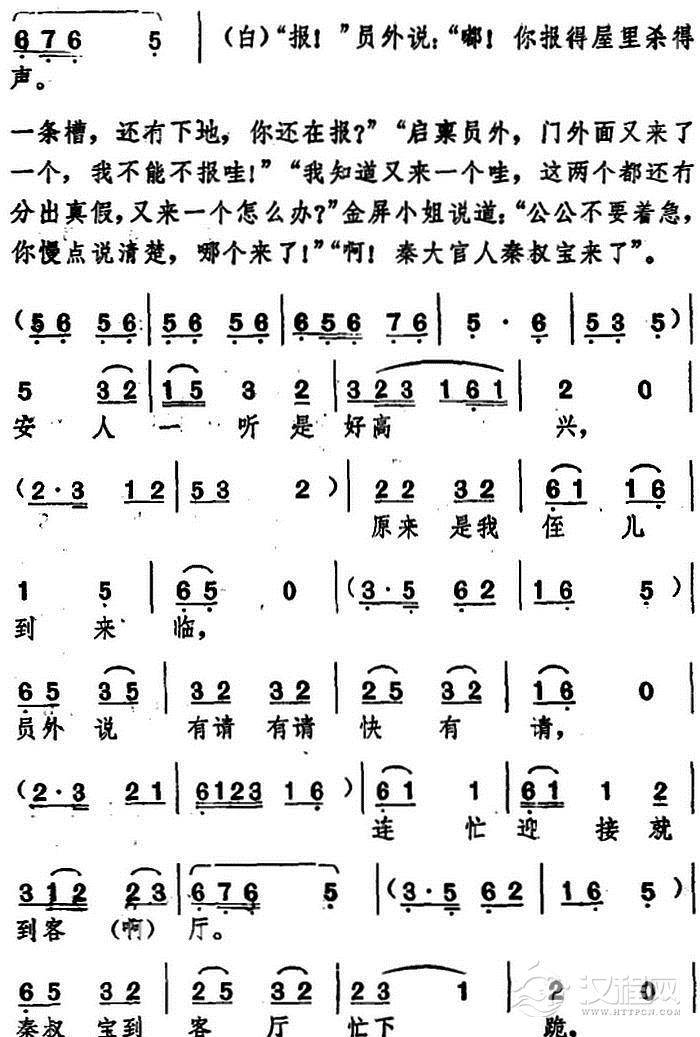 6 7 6 5 | （白）“报！”员外说：“嘟！你报得屋里杀得
声。
一条槽，还冇下地，你还在报？”“启禀员外，门外面又来了
一个，我不能不报哇！”“我知道又来一个哇，这两个都还冇
分出真假，又来一个怎么办？”金屏小姐说道：“公公不要着急，
你慢点说清楚，哪个来了！”“啊！秦大官人秦叔宝来了”。
(5 6 5 6 | 5 6 5 6 | 6 5 6 7 6 | 5 · 6 | 5 3 5) |
5 3 2 | 1 5 3 2 | 3 2 3 1 6 1 | 2 0 |
安 人 一 听 是 好 高 兴，
(2 · 3 1 2 | 5 3 2) | 2 2 3 2 | 6 1 1 6 |
原来 是我 侄 儿
1 5 | 6 5 0 | (3 · 5 6 2 | 1 6 5) |
到 来 临，
6 5 3 5 | 3 2 3 2 | 2 5 3 2 | 1 6 0 |
员外 说 有请 有请 快 有 请，
(2 · 3 2 1 | 6 1 2 3 1 6) | 6 1 1 | 6 1 1 2 |
连 忙 迎 接 就
3 1 2 2 3 | 6 7 6 5 | (3 · 5 6 2 | 1 6 5) |
到客 （啊） 厅。
6 5 3 2 | 2 5 3 2 | 2 3 1 | 2 0
秦叔 宝到 客 厅 忙下 跪，
汉程网
WWW.HTTPCN.COM